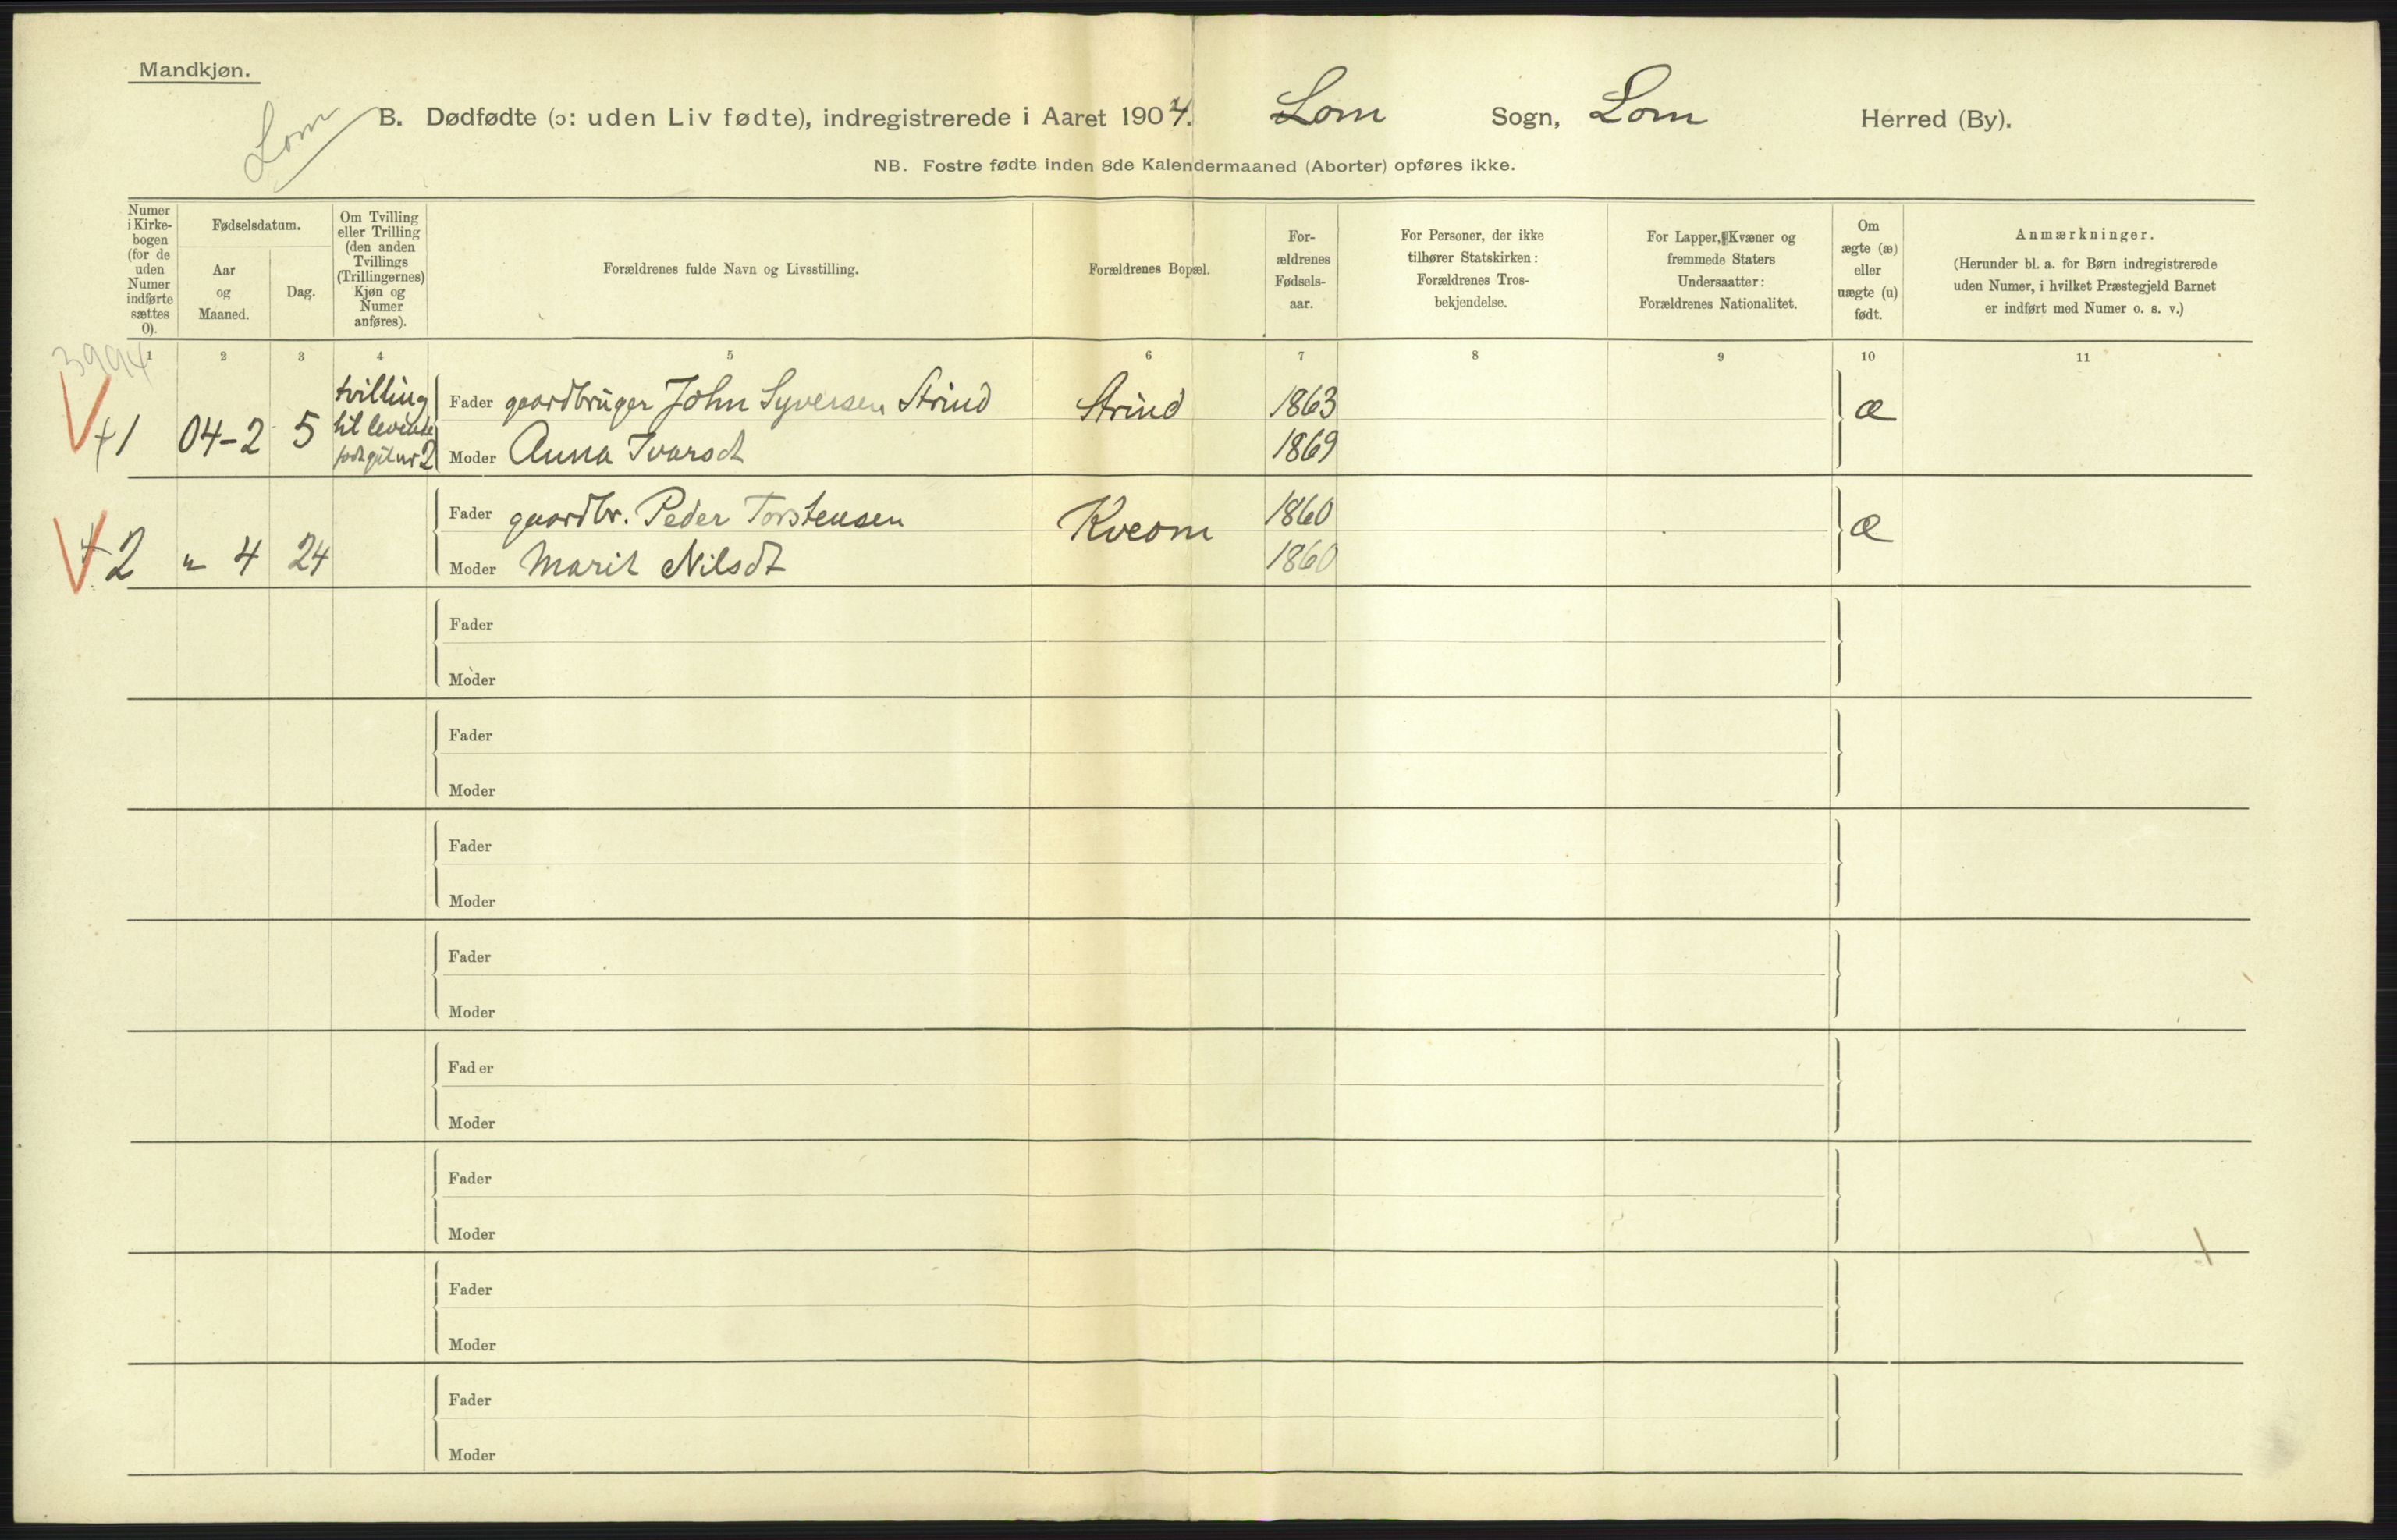 Mandkjøn.
Lom
B. Dødfødte (ɔ: uden Liv fødte), indregistrerede i Aaret 1904. Lom Sogn, Lom Herred (By).
NB. Fostre fødte inden 8de Kalendermaaned (Aborter) opføres ikke.
Numer
i Kirke-
bogen
(for de
uden
Numer
indførte
sættes
0).
Fødselsdatum.
Aar
og
Maaned.
Dag.
Om Tvilling
eller Trilling
(den anden
Tvillings
(Trillingernes)
Kjøn og
Numer
anføres).
Forældrenes fulde Navn og Livsstilling.
Forældrenes Bopæl.
For-
ældrenes
Fødsels-
aar.
For Personer, der ikke
tilhører Statskirken:
Forældrenes Tros-
bekjendelse.
For Lapper, Kvæner og
fremmede Staters
Undersaatter:
Forældrenes Nationalitet.
Om
ægte (æ)
eller
uægte (u)
født.
Anmærkninger.
(Herunder bl. a. for Børn indregistrerede
uden Numer, i hvilket Præstegjeld Barnet
er indført med Numer o. s. v.)
3994
1 2 3 4 5 6 7 8 9 10 11
+1 04-2 5
tvilling
til levende
nr 2
Fader gaardbruger John Syversen Strind Strind 1863 æ
Moder Anna Ivarsdt 1869
+2 " 4 24
Fader gaardbr. Peder Torstensen Kveom 1860 æ
Moder Marit Nilsdt 1860
Fader
Moder
Fader
Moder
Fader
Moder
Fader
Moder
Fader
Moder
Fader
Moder
Fader
Moder
Fader
Moder